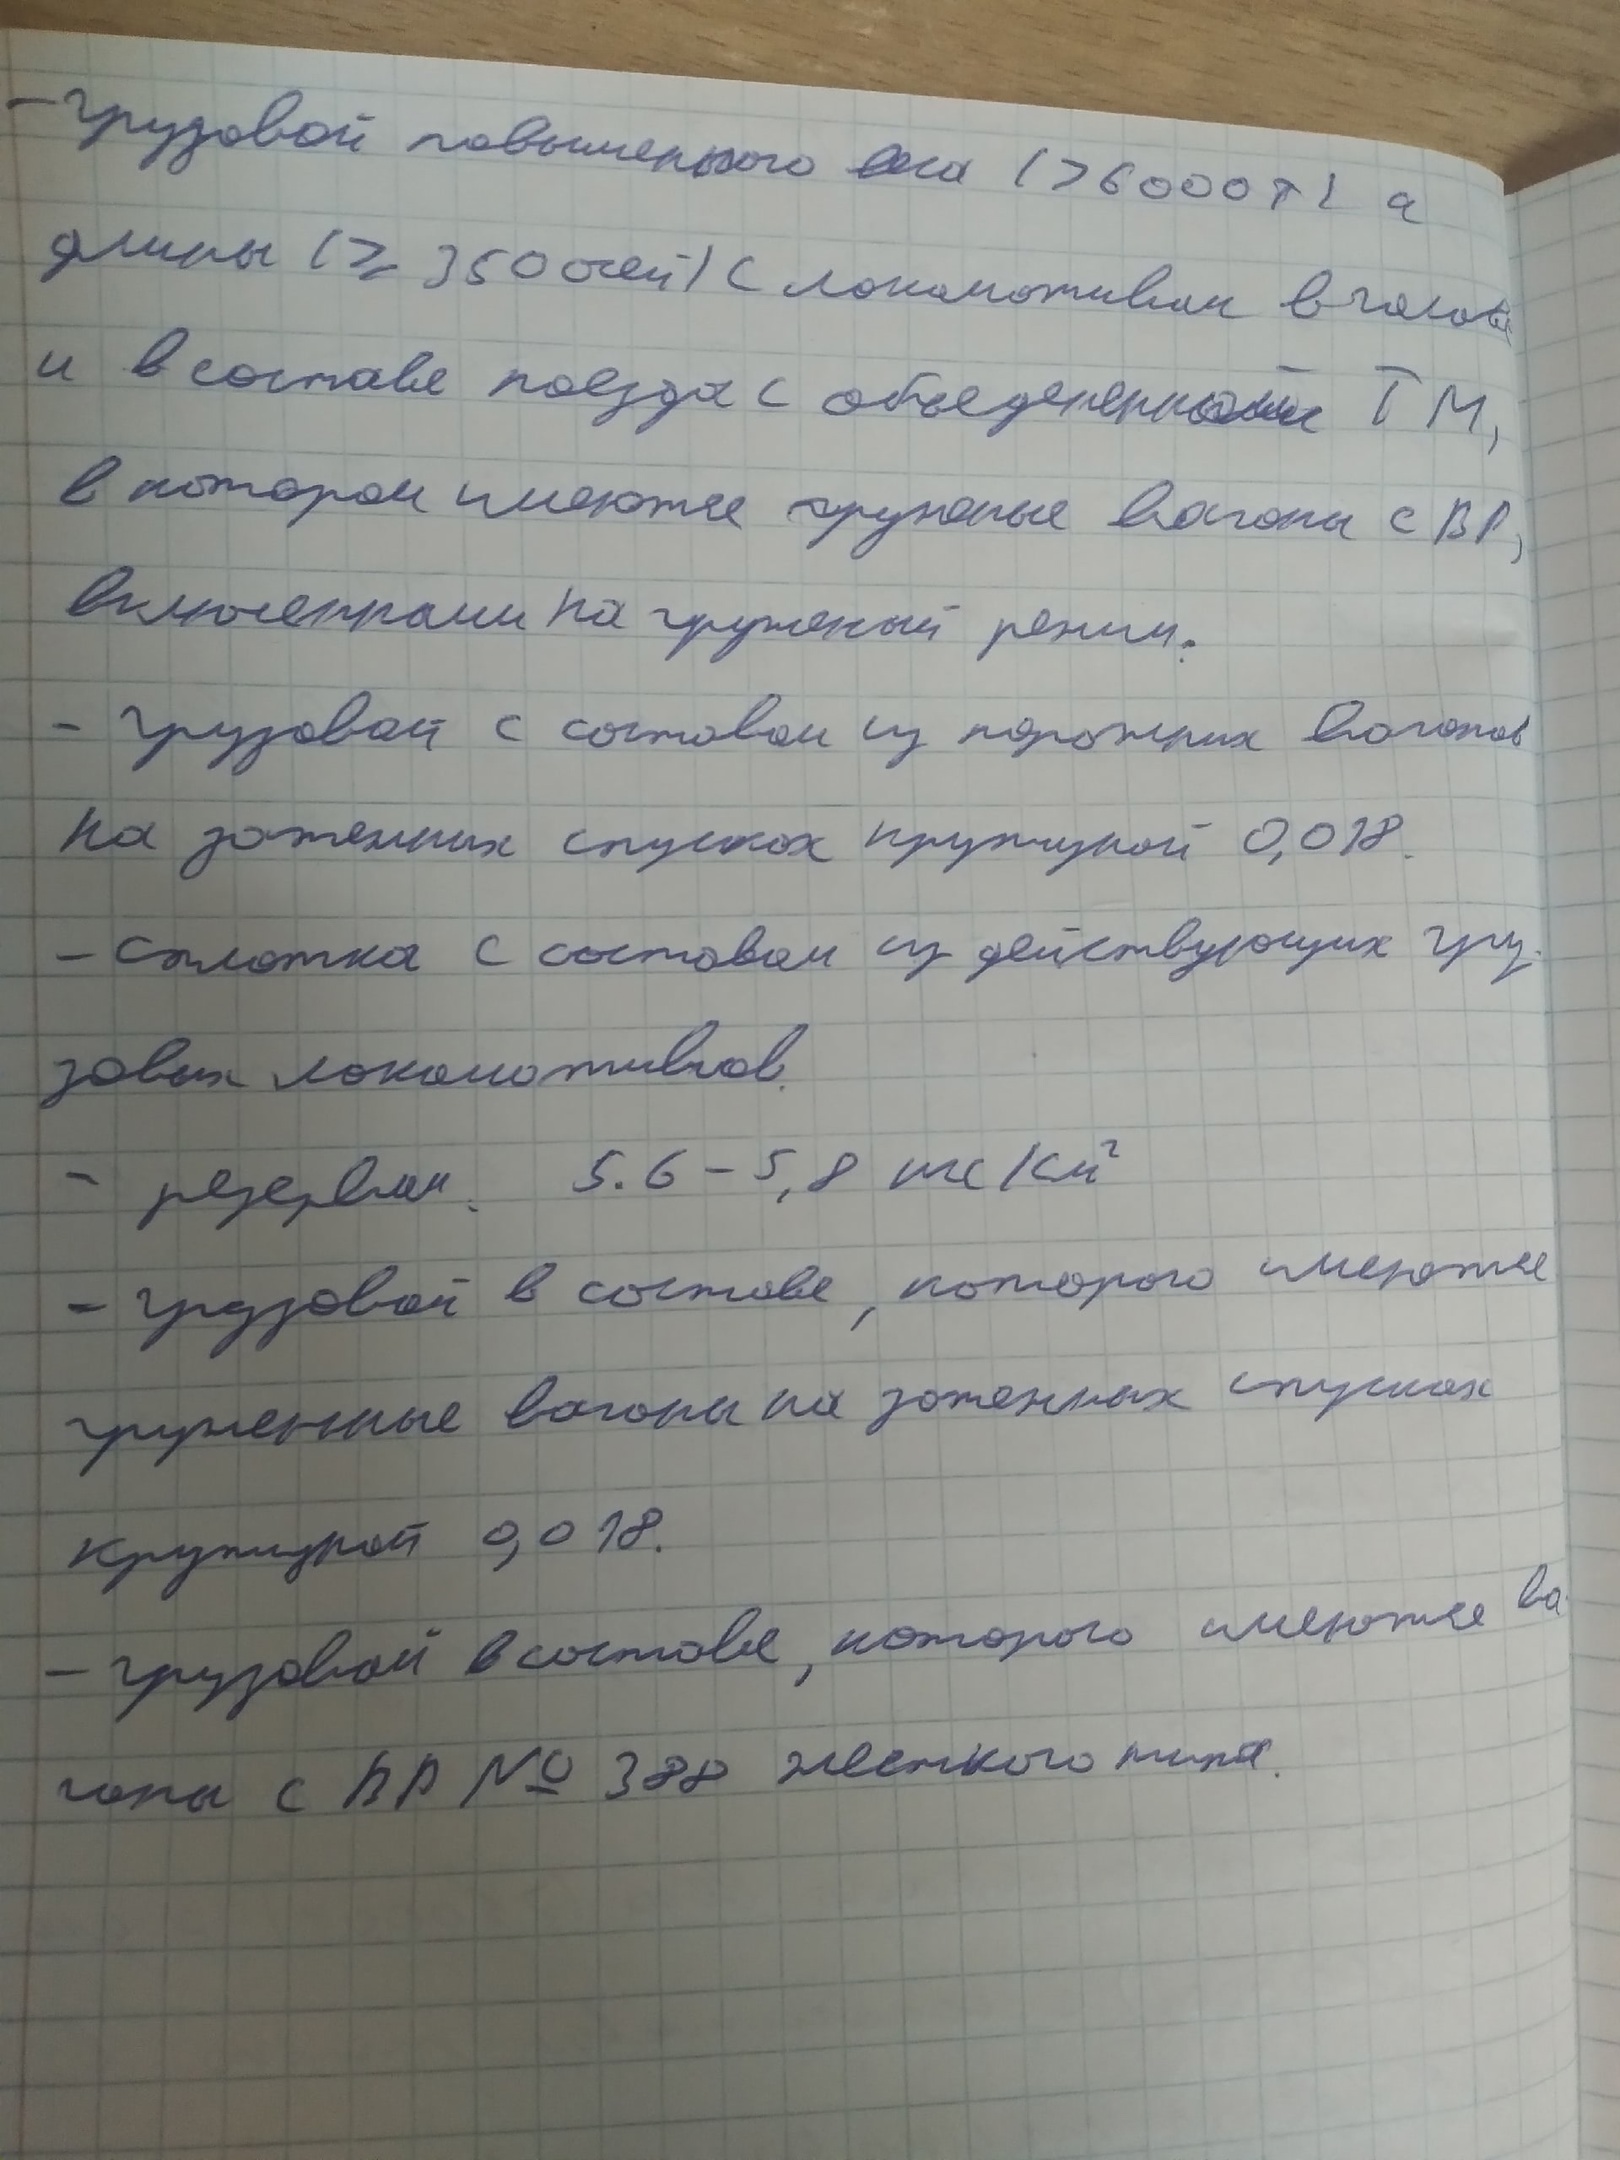 - грузовой повышенного веса (>6000т) и
длины (≥ 350 осей) с локомотивом в голове
и в составе поезда с объеденённой ТМ,
в котором имеются груженые вагоны с ВР,
включенными на груженый режим.
- грузовой с составом из порожних вагонов
на затяжных спусках крутизной 0,018.
- сплотка с составом из действующих гру-
зовых локомотивов.
- резервом. 5.6 - 5,8 кгс/см²
- грузовой в составе, которого имеются
груженные вагоны на затяжных спусках
крутизной 0,018.
- грузовой в составе, которого имеются ва-
гоны с ВР № 388 жесткого типа.